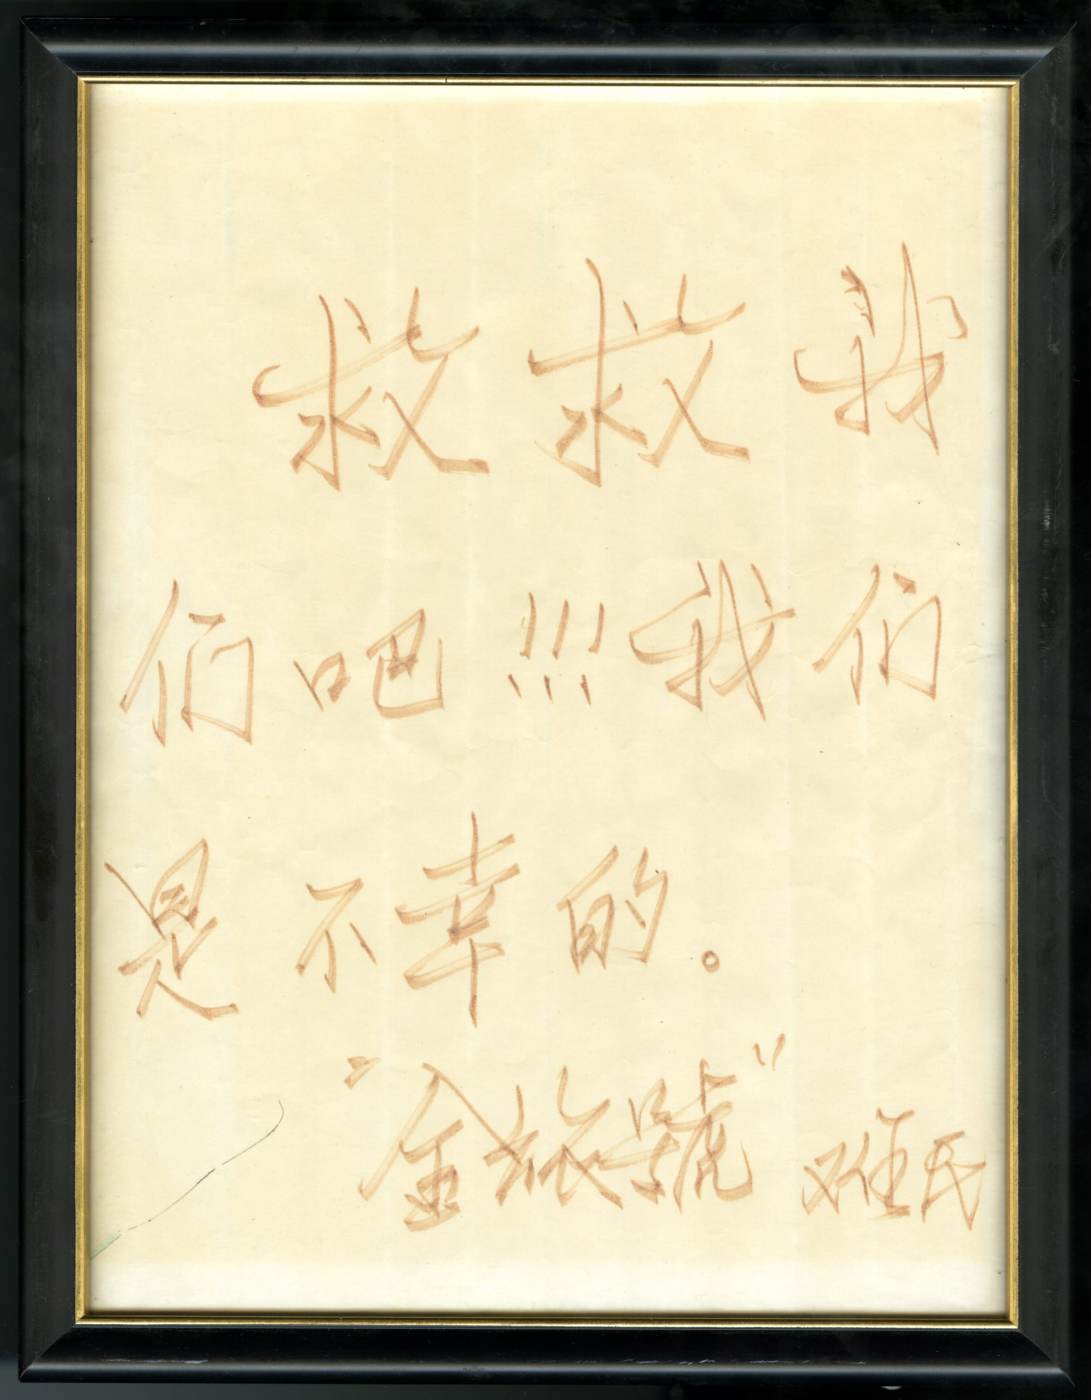 救救我
们吧!!!我们
是不幸的。
"金旅號"难民